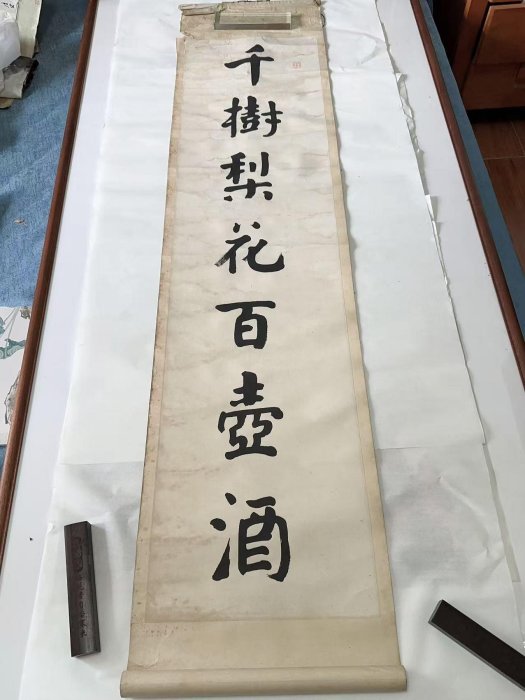 千樹梨花百壺酒